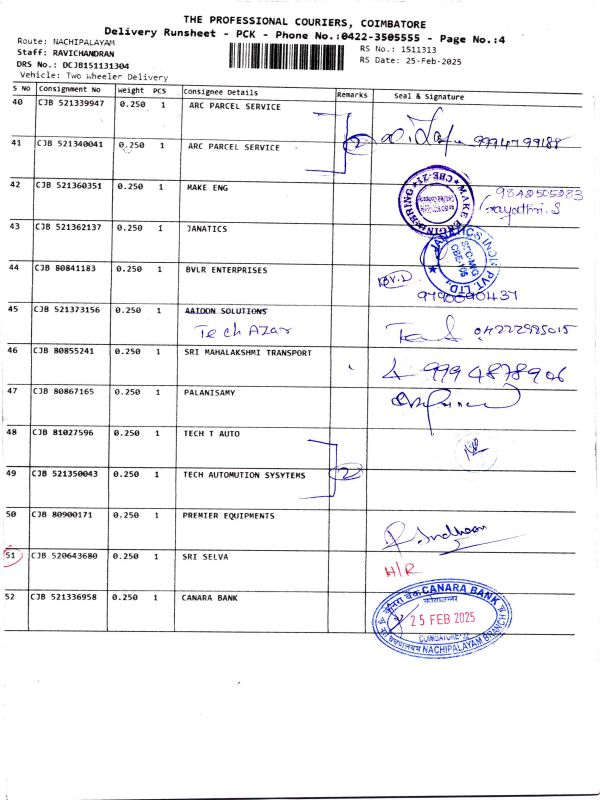 THE PROFESSIONAL COURIERS, COIMBATORE
Delivery Runsheet - PCK - Phone No.:0422-3505555 - Page No.:4
Route: NACHIPALAYAM
RS No.: 1511313
Staff: RAVICHANDRAN
RS Date: 25-Feb-2025
DRS No.: DCJB151131304
Vehicle: Two Wheeler Delivery
S No Consignment No Weight PCS Consignee Details Remarks Seal & Signature
40 CJB 521339947 0.250 1 ARC PARCEL SERVICE
2
41 CJB 521340041 0.250 1 ARC PARCEL SERVICE
42 CJB 521360351 0.250 1 MAKE ENG
MAKE ENGINEERING CBE-21
Gayathri.S
43 CJB 521362137 0.250 1 JANATICS
JANATICS INDIA PVT. LTD.
44 CJB 80841183 0.250 1 BVLR ENTERPRISES
45 CJB 521373156 0.250 1 AATOON SOLUTIONS
Tech Azar
46 CJB 80855241 0.250 1 SRI MAHALAKSHMI TRANSPORT
9994878906
47 CJB 80867165 0.250 1 PALANISAMY
48 CJB 81027596 0.250 1 TECH T AUTO
2
49 CJB 521350043 0.250 1 TECH AUTOMUTION SYSYTEMS
50 CJB 80900171 0.250 1 PREMIER EQUIPMENTS
51 CJB 520643680 0.250 1 SRI SELVA
H/R
52 CJB 521336958 0.250 1 CANARA BANK
केनरा बैंक CANARA BANK
25 FEB 2025
COIMBATORE
NACHIPALAYAM BRANCH